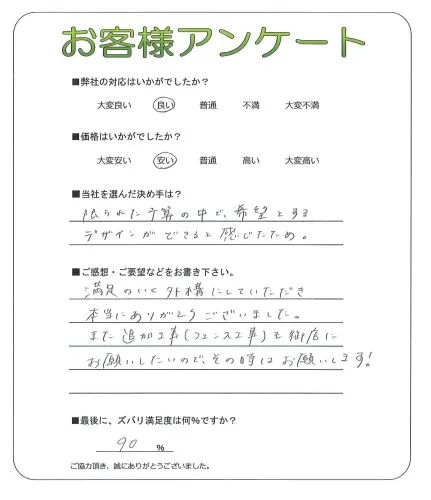 お客様アンケート
■弊社の対応はいかがでしたか?
大変良い 良い 普通 不満 大変不満
■価格はいかがでしたか?
大変安い 安い 普通 高い 大変高い
■当社を選んだ決め手は?
限られた予算の中で、希望とする
デザインができると感じたため。
■ご感想・ご要望などをお書き下さい。
満足のいく外構にしていただき
本当にありがとうございました。
また追加工事(フェンス工事)も御店に
お願いしたいので、その時はお願いします!
■最後に、ズバリ満足度は何%ですか?
90 %
ご協力頂き、誠にありがとうございました。